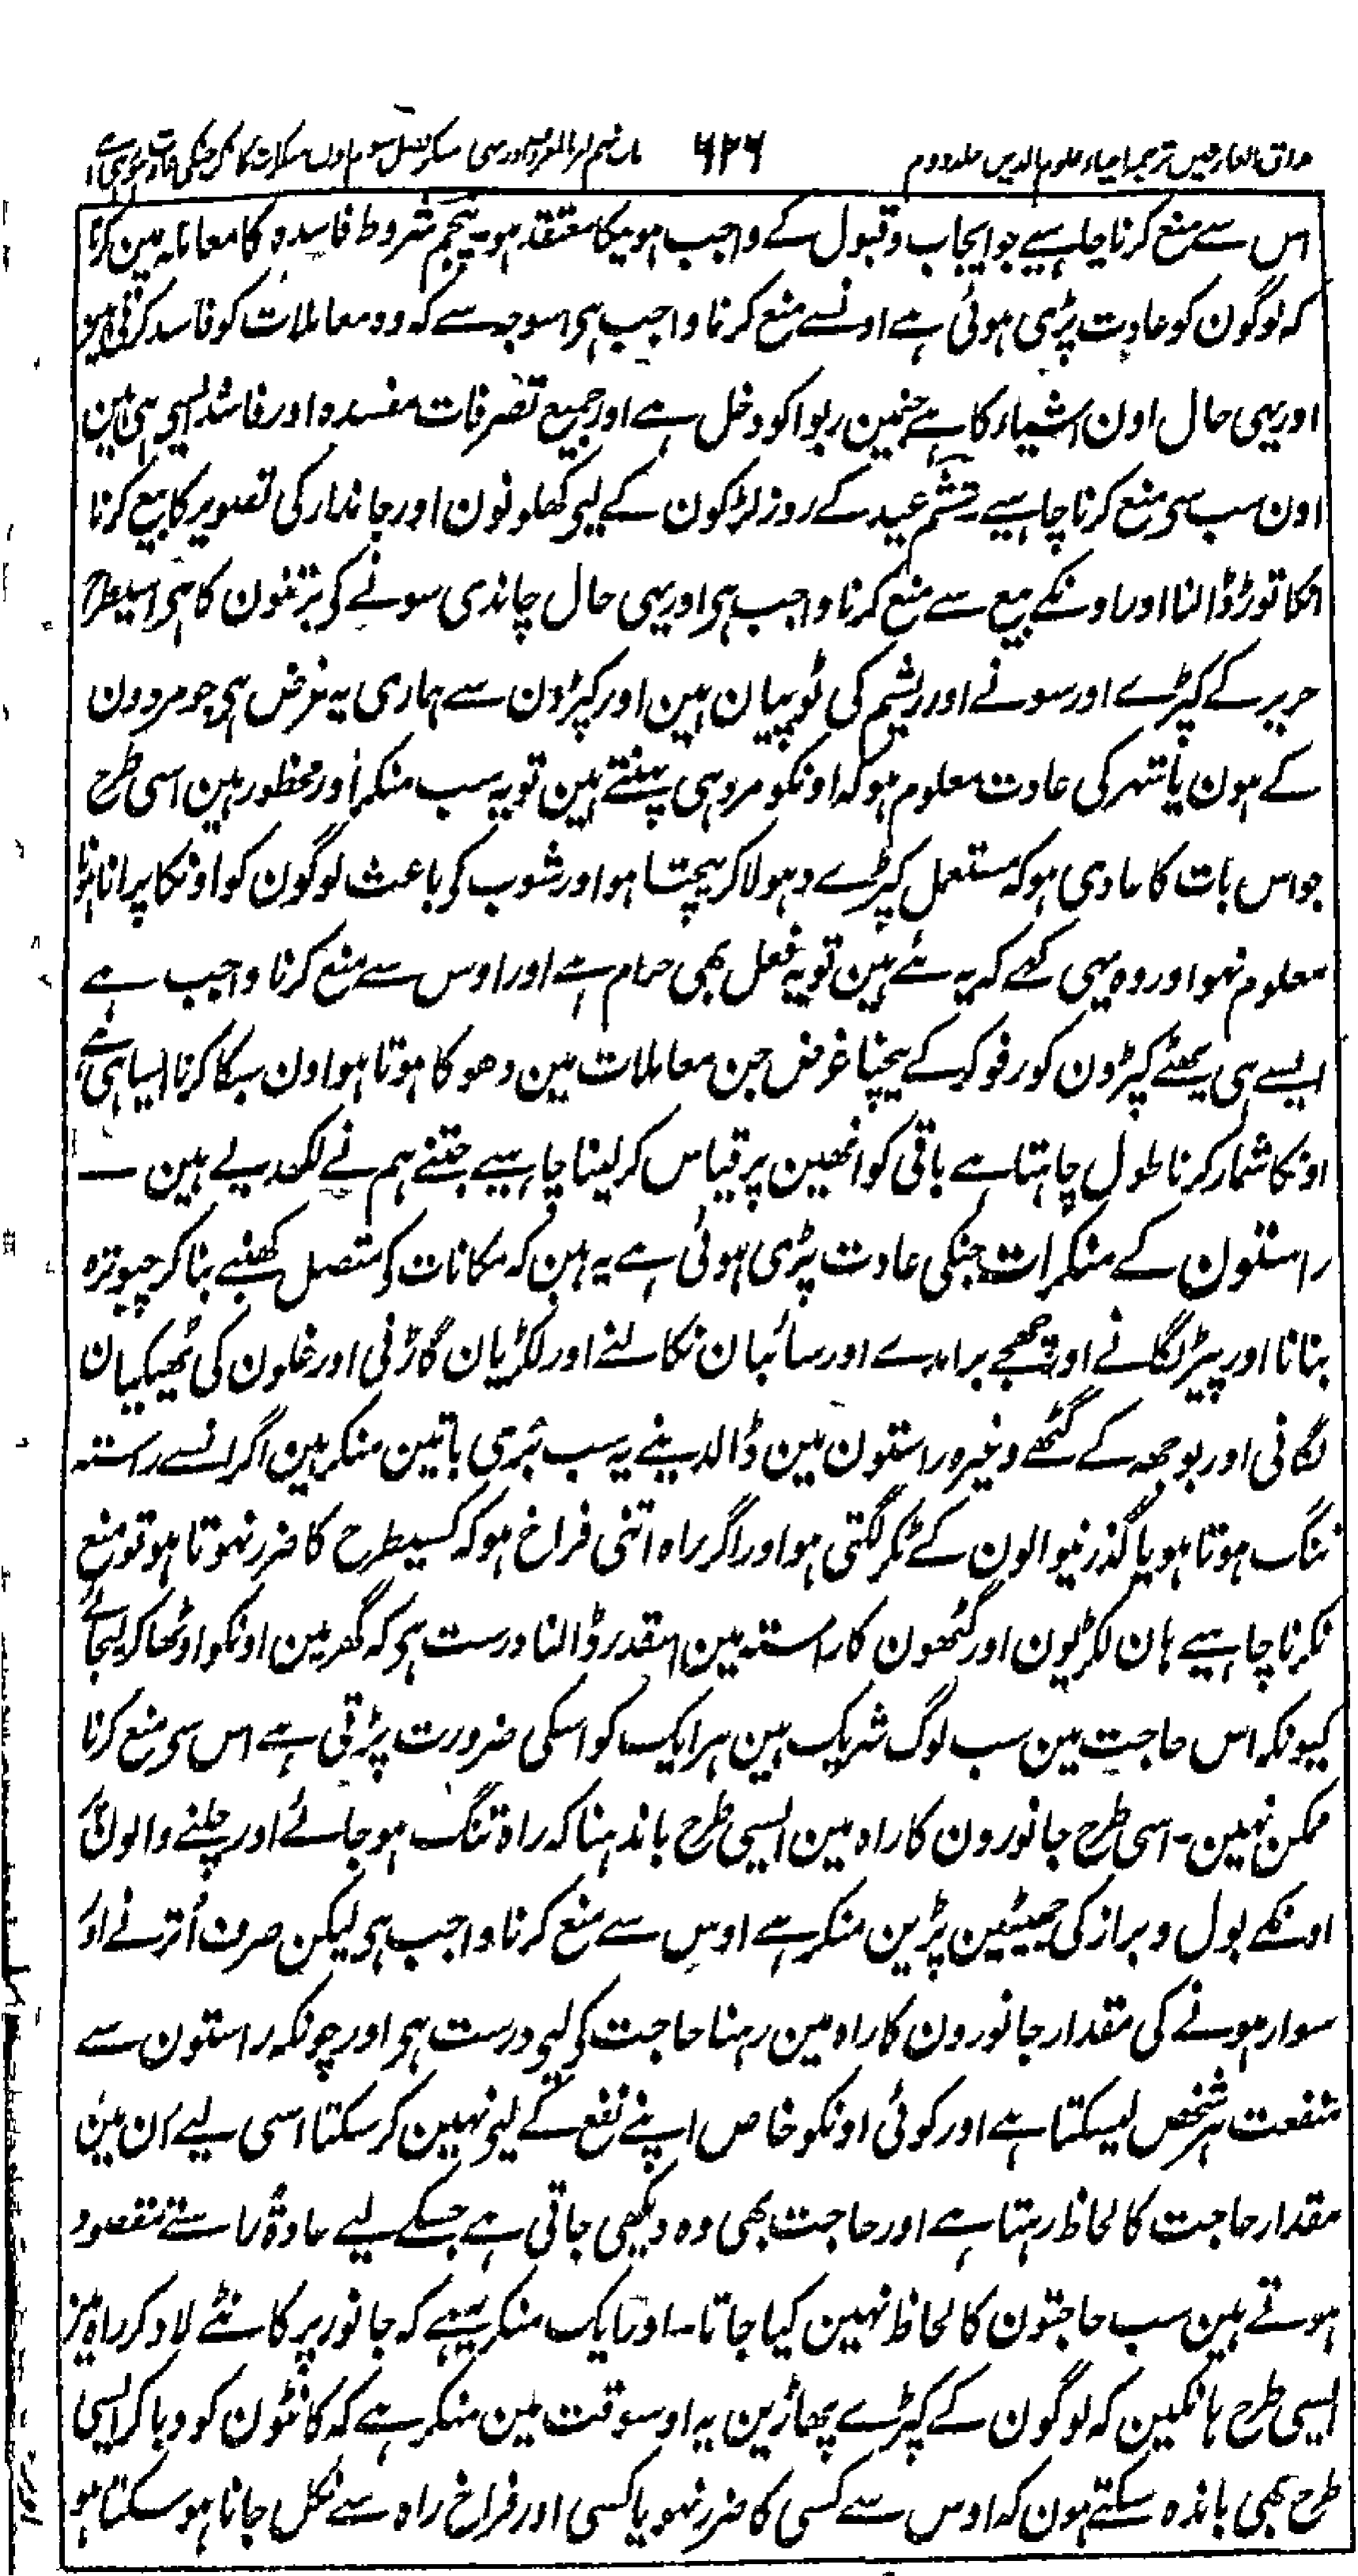 مذاق العارفین ترجمہ احیاء علوم الدین جلد دوم ۶۲۶
اس سے منع کرنا چاہیے جو ایجاب و قبول کے واجب ہونیکا معتقد ہو پنجم شروط فاسدہ کا معاملہ مین کرنا
کہ لوگون کو عادت پڑی ہوئی ہے اونسے منع کرنا واجب ہی اسوجہ سے کہ وہ معاملات کو فاسد کرتی ہین
اور یہی حال اون اشیاء کا ہے جنمین ربوا کو دخل ہے اور جمیع تصرفات مفسدہ اور فاسد ایسی ہی ہین
اون سب سی منع کرنا چاہیے ششم عید کے روز لڑکون کے لیی کھلونون اور جاندار کی تصویر کا بیع کرنا
انکا توڑ ڈالنا اور اونکے بیع سے منع کرنا واجب ہی اور یہی حال چاندی سونے کی برتنون کا ہی اسیطرح
حریر کے کپڑے اور سونے اور ریشم کی ٹوپیان ہین اور کپڑون سے ہماری یہ غرض ہی جو مردون
کے ہون یا شہر کی عادت معلوم ہو کہ اونکو مرد ہی پہنتے ہین تو یہ سب منکر اور محظور ہین اسی طرح
جو اس بات کا عادی ہو کہ مستعمل کپڑے دہولا کر بیچتا ہو اور شوب کی باعث لوگون کو اونکا پرانا ہونا
معلوم نہو اور وہ یہی کہے کہ یہ نئے ہین تو یہ فعل بھی حرام ہے اور اوس سے منع کرنا واجب ہے
ایسے ہی پھٹے کپڑون کو رفو کر کے بیچنا غرض جن معاملات مین دھوکا ہوتا ہو اون سبکا کرنا ایسا ہی ہے
اونکا شمار کرنا طول چاہتا ہے باقی کو انھین پر قیاس کر لینا چاہیے جتنے ہم نے لکھدیے ہین ۔
راستون کے منکرات جنکی عادت پڑی ہوئی ہے یہ ہین کہ مکانات کی متصل کھنبے بنا کر چبوترہ
بنانا اور پیڑ لگانے اور چھجے برامدے اور سائبان نکالنے اور لکڑیان گاڑنی اور غلون کی ٹھیکیان
لگانی اور بوجھہ کے گٹھے وغیرہ راستون مین ڈالدینے یہ سب بُری باتین منکر ہین اگر انسے راستہ
تنگ ہوتا ہو یا گذرنیوالون کے ٹکر لگتی ہو اور اگر راہ اتنی فراخ ہو کہ کسیطرح کا ضرر نہوتا ہو تو منع
نکرنا چاہیے ہان لکڑیون اور گٹھون کا راستہ مین اسقدر ڈالنا درست ہی کہ گھر مین اونکو اوٹھا کر لیجائے
کیونکہ اس حاجت مین سب لوگ شریک ہین ہر ایک کو اسکی ضرورت پڑتی ہے اس سی منع کرنا
ممکن نہین۔ اسی طرح جانورون کا راہ مین ایسی طرح باندہنا کہ راہ تنگ ہو جائے اور چلنے والون پر
اونکے بول و براز کی چھینٹین پڑین منکر ہے اوس سے منع کرنا واجب ہی لیکن صرف اُترنے اور
سوار ہونے کی مقدار جانورون کا راہ مین رہنا حاجت کی لیی درست ہی اور چونکہ راستون سے
منفعت ہر شخص لیسکتا ہے اور کوئی اونکو خاص اپنے نفع کے لیی نہین کر سکتا اسی لیے اُن مین
مقدار حاجت کا لحاظ رہتا ہے اور حاجت بھی وہ دیکھی جاتی ہے جسکے لیے عادۃً راستے مقصود
ہوتے ہین سب حاجتون کا لحاظ نہین کیا جاتا۔ اور ایک منکر یہہے کہ جانور پر کانٹے لاد کر راہ مین
ایسی طرح ہانکین کہ لوگون کے کپڑے پھاڑین یہ اوسوقت مین منکر ہے کہ کانٹون کو دبا کر ایسی
طرح بھی باندہ سکتے ہون کہ اوس سے کسی کا ضرر نہو یا کسی اور فراخ راہ سے نکل جانا ہو سکتا ہو